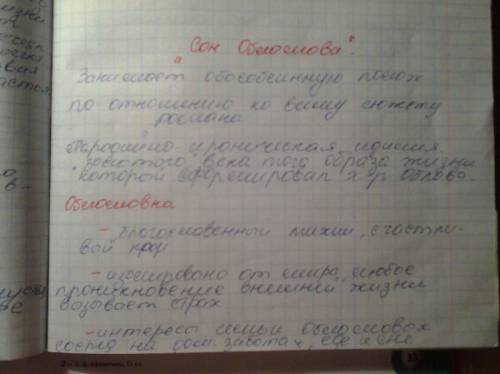 "Сон Обломова".
Занимает обособленную полож
по отношению ко всему сюжету
романа
Пародийно-ироническая идиллия
"золотого" века того образа жизни
который сформировал х-р Облова.
Обломовка
- благословенный тихий, счастли-
вый край
- изолировано от мира, любое
проникновение внешней жизни
вызывает страх
- интересы семьи обломовых
сосред на дом. заботах, еде и сне